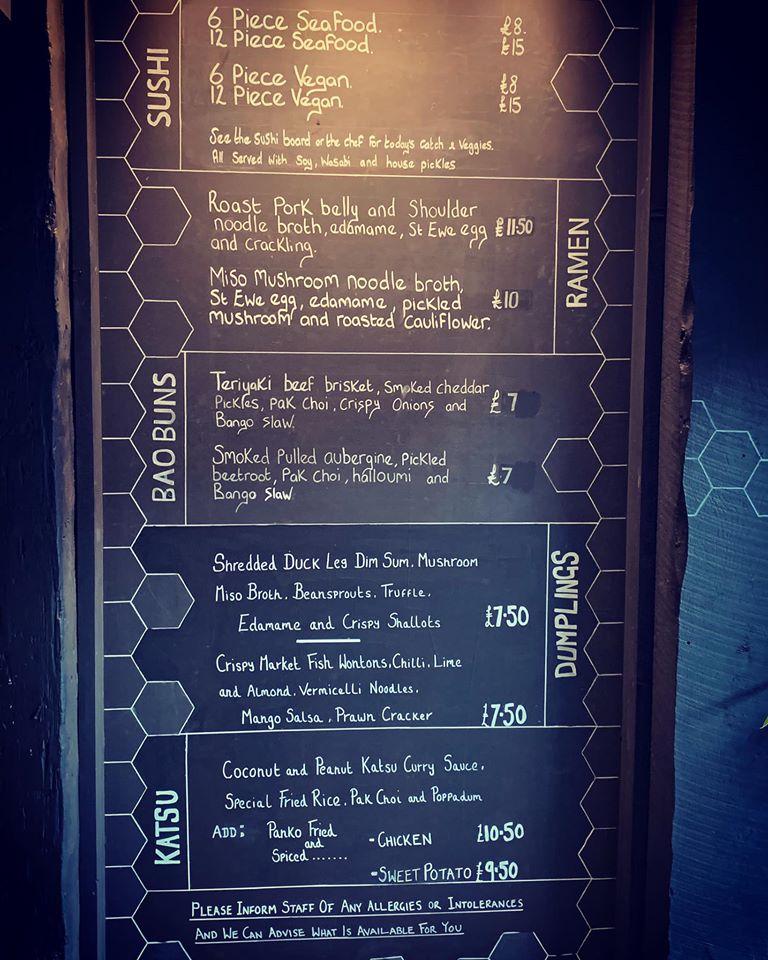 SUSHI
6 Piece Seafood. £8.
12 Piece Seafood. £15
6 Piece Vegan. £8
12 Piece Vegan. £15
See the sushi board or the chef for today's catch & Veggies.
All Served with Soy, Wasabi and house pickles
RAMEN
Roast Pork belly and Shoulder
noodle broth, edamame, St Ewe egg £11.50
and crackling.
Miso Mushroom noodle broth,
St Ewe egg, edamame, pickled £10
mushroom and roasted cauliflower.
BAO BUNS
Teriyaki beef brisket, Smoked cheddar
Pickles, Pak Choi, Crispy Onions and £7
Bango Slaw
Smoked Pulled aubergine, Pickled
beetroot, Pak Choi, halloumi and £7
Bango Slaw
DUMPLINGS
Shredded Duck Leg Dim Sum. Mushroom
Miso Broth. Beansprouts. Truffle.
Edamame and Crispy Shallots £7.50
Crispy Market Fish Wontons. Chilli. Lime
and Almond. Vermicelli Noodles.
Mango Salsa. Prawn Cracker £7.50
KATSU
Coconut and Peanut Katsu Curry Sauce.
Special Fried Rice. Pak Choi and Poppadum
ADD: Panko Fried - CHICKEN £10.50
and
Spiced.......
- SWEET POTATO £9.50
PLEASE INFORM STAFF OF ANY ALLERGIES OR INTOLERANCES
AND WE CAN ADVISE WHAT IS AVAILABLE FOR YOU